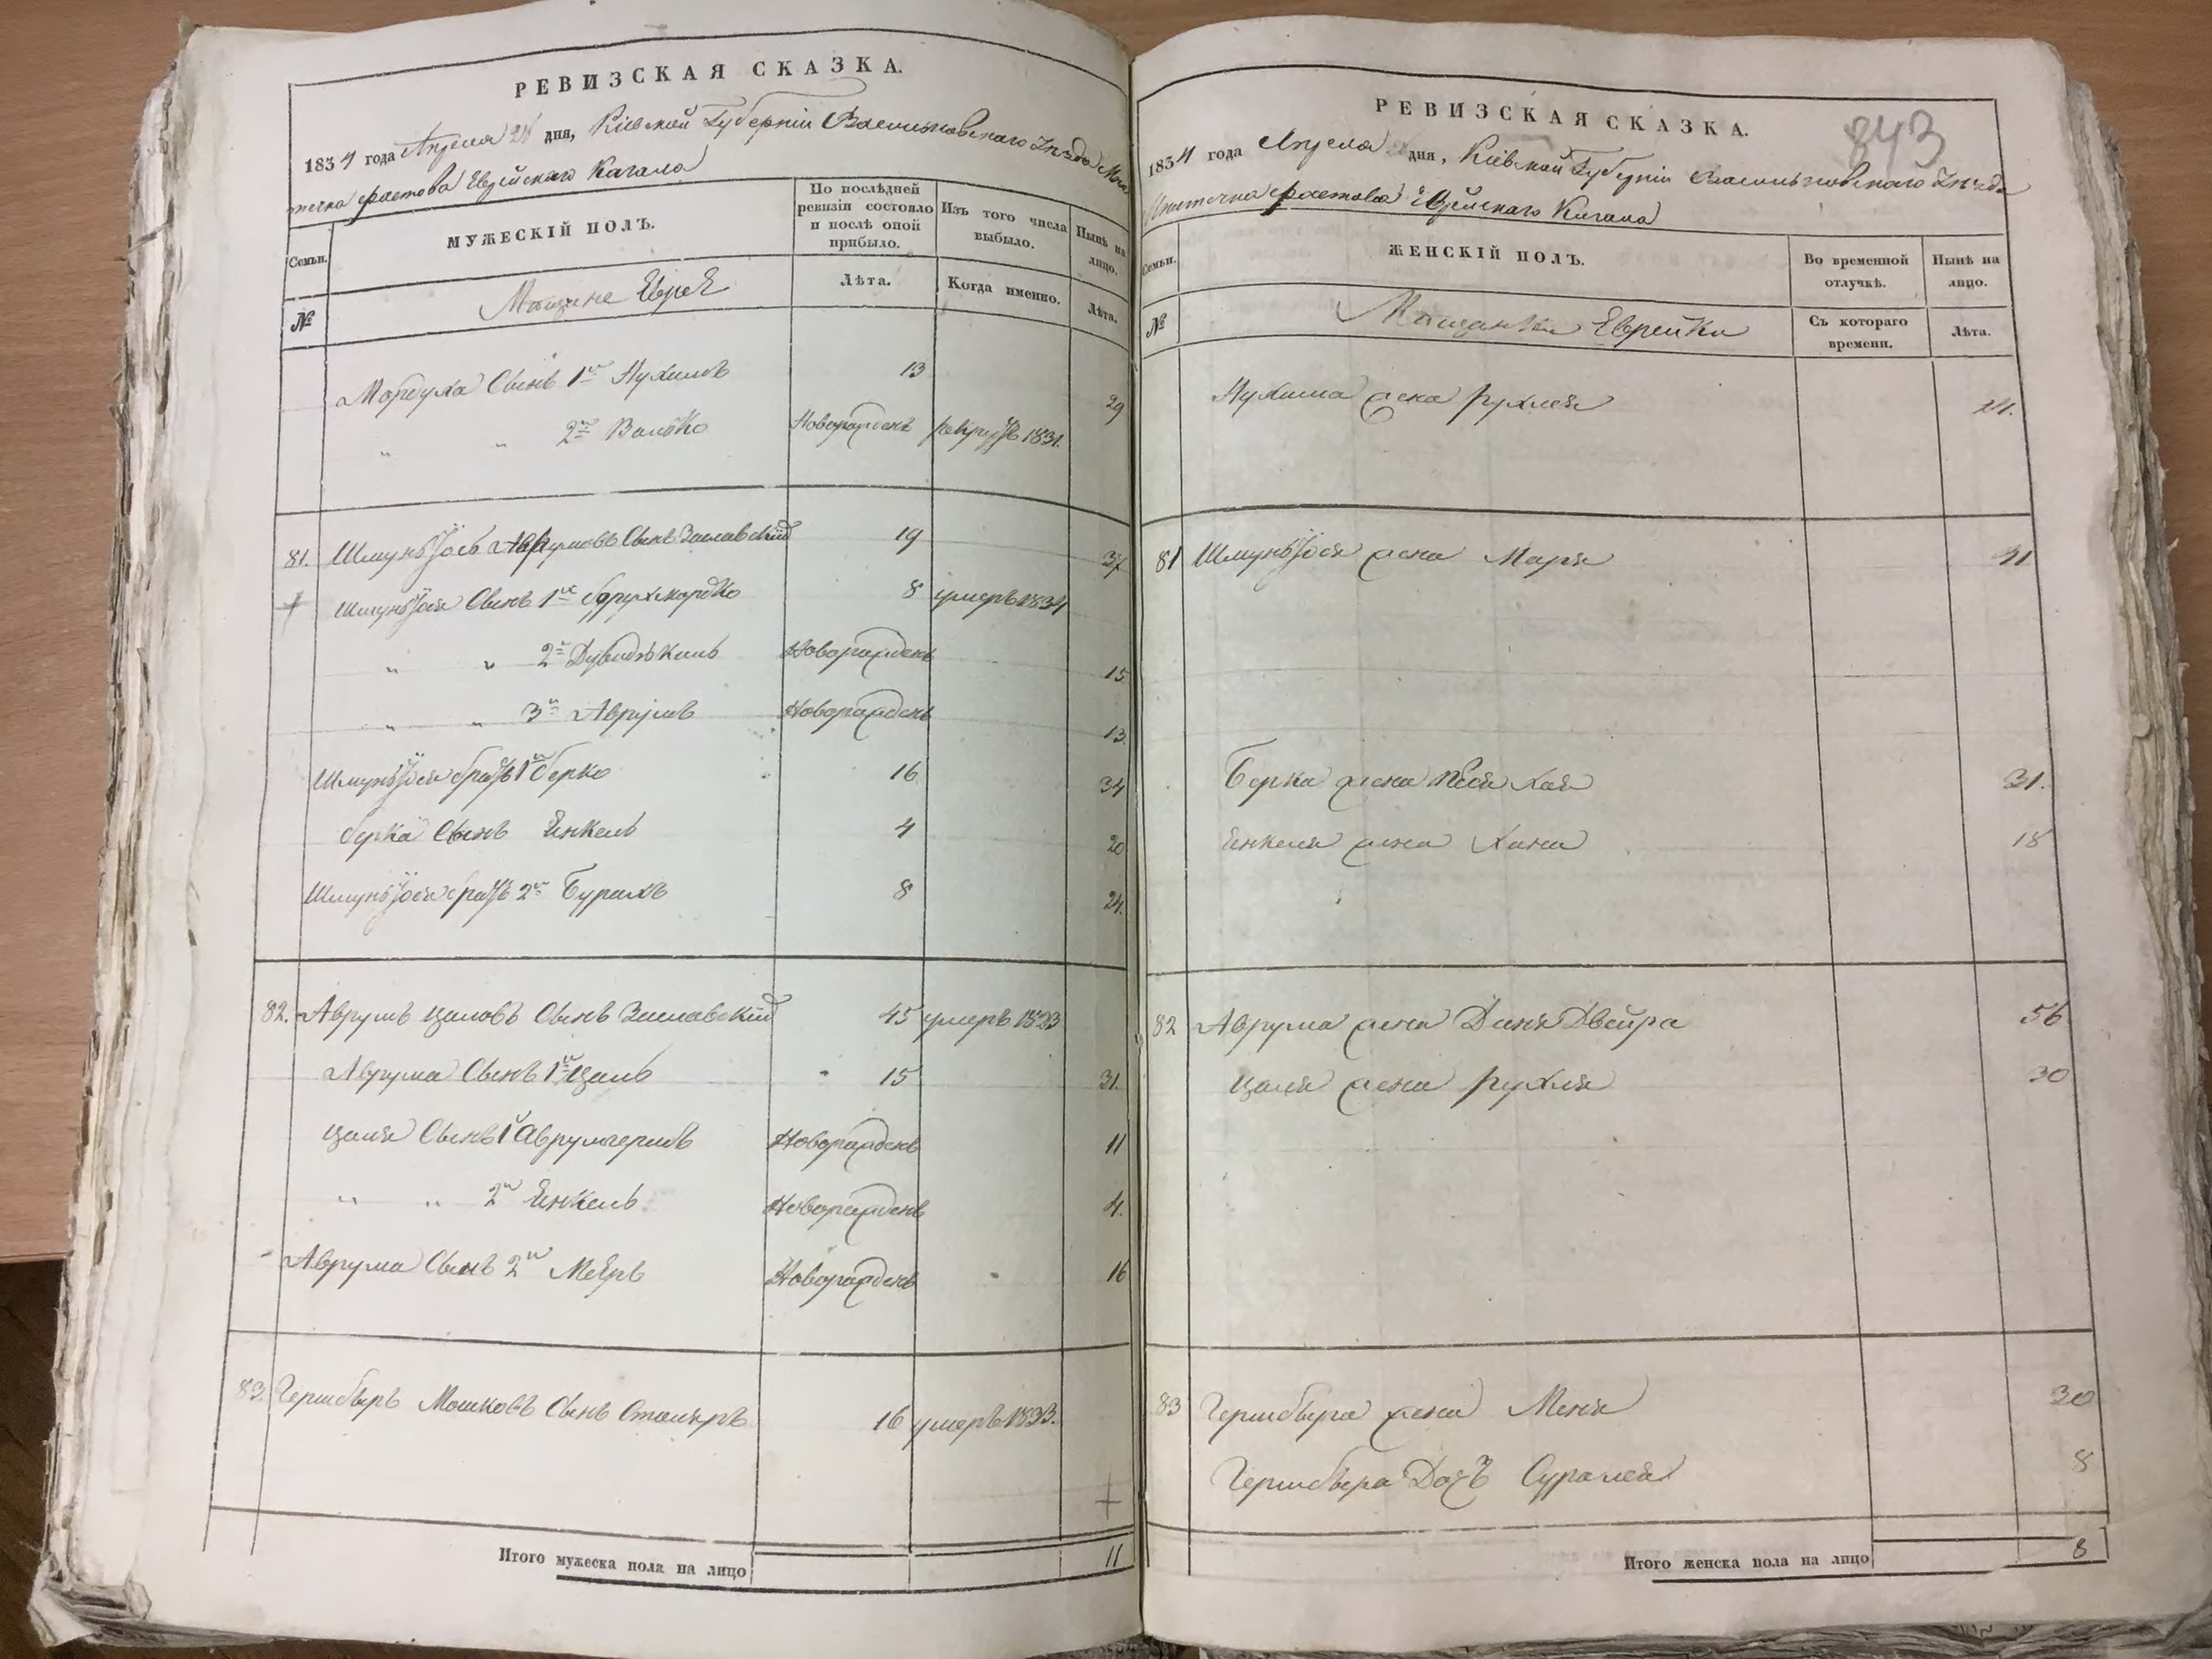 РЕВИЗСКАЯ СКАЗКА.
1834 года Апреля дня, Кіевской Губерніи Васильковскаго Уезда Мес
течка Фастова Еврейскаго Кагала
Семьи.
МУЖЕСКІЙ ПОЛЪ.
По послѣдней ревизіи состояло и послѣ оной прибыло.
Изъ того числа выбыло.
Нынѣ на лицо.
№
Мещане Евреѣ
Лѣта.
Когда именно.
Лѣта.
Мордуха Сынъ 1й Нухимъ 13 29
" " 2й Волько Новорожденъ рекрутъ 1831.
81. Шмуль Іось Аврумовъ Сынъ Заславскій 19 37
Шмуль Іося Сынъ 1й 8 умеръ 1834
" " 2й Новорожденъ 15
" " 3й Аврумъ Новорожденъ 13
Шмуль Іося братъ 1й Берко 16 34
Берка Сынъ Янкель 4 20
Шмуль Іося братъ 2й Бурахъ 8 24.
82. Аврумъ Цаловъ Сынъ Заславскій 45 умеръ 1823
Аврума Сынъ 1й Цаль 15 31.
Цаля Сынъ 1й Аврумгершъ Новорожденъ 11
" " 2й Янкель Новорожденъ 4.
Аврума Сынъ 2й Меѣръ Новорожденъ 16
83. Гершбѣръ Мошковъ Сынъ Столяръ 16 умеръ 1833.
Итого мужеска пола на лицо 11
843
РЕВИЗСКАЯ СКАЗКА.
1834 года Апреля дня, Кіевской Губерніи Васильковскаго Уезда
Местечка Фастова Еврейскаго Кагала
Семьи.
ЖЕНСКІЙ ПОЛЪ.
Во временной отлучкѣ.
Нынѣ на лицо.
№
Мещанки Еврейки
Съ котораго времени.
Лѣта.
Нухима жена Рухля 24.
81 Шмуль Іося жена Маря 31
Берка жена Песя Хая 31.
Янкеля жена Хана 18
82 Аврума жена Двейра 56
Цаля жена Рухля 30
83 Гершбѣра жена Меня 30
Гершбѣра Дочь Суралея 8
Итого женска пола на лицо 8